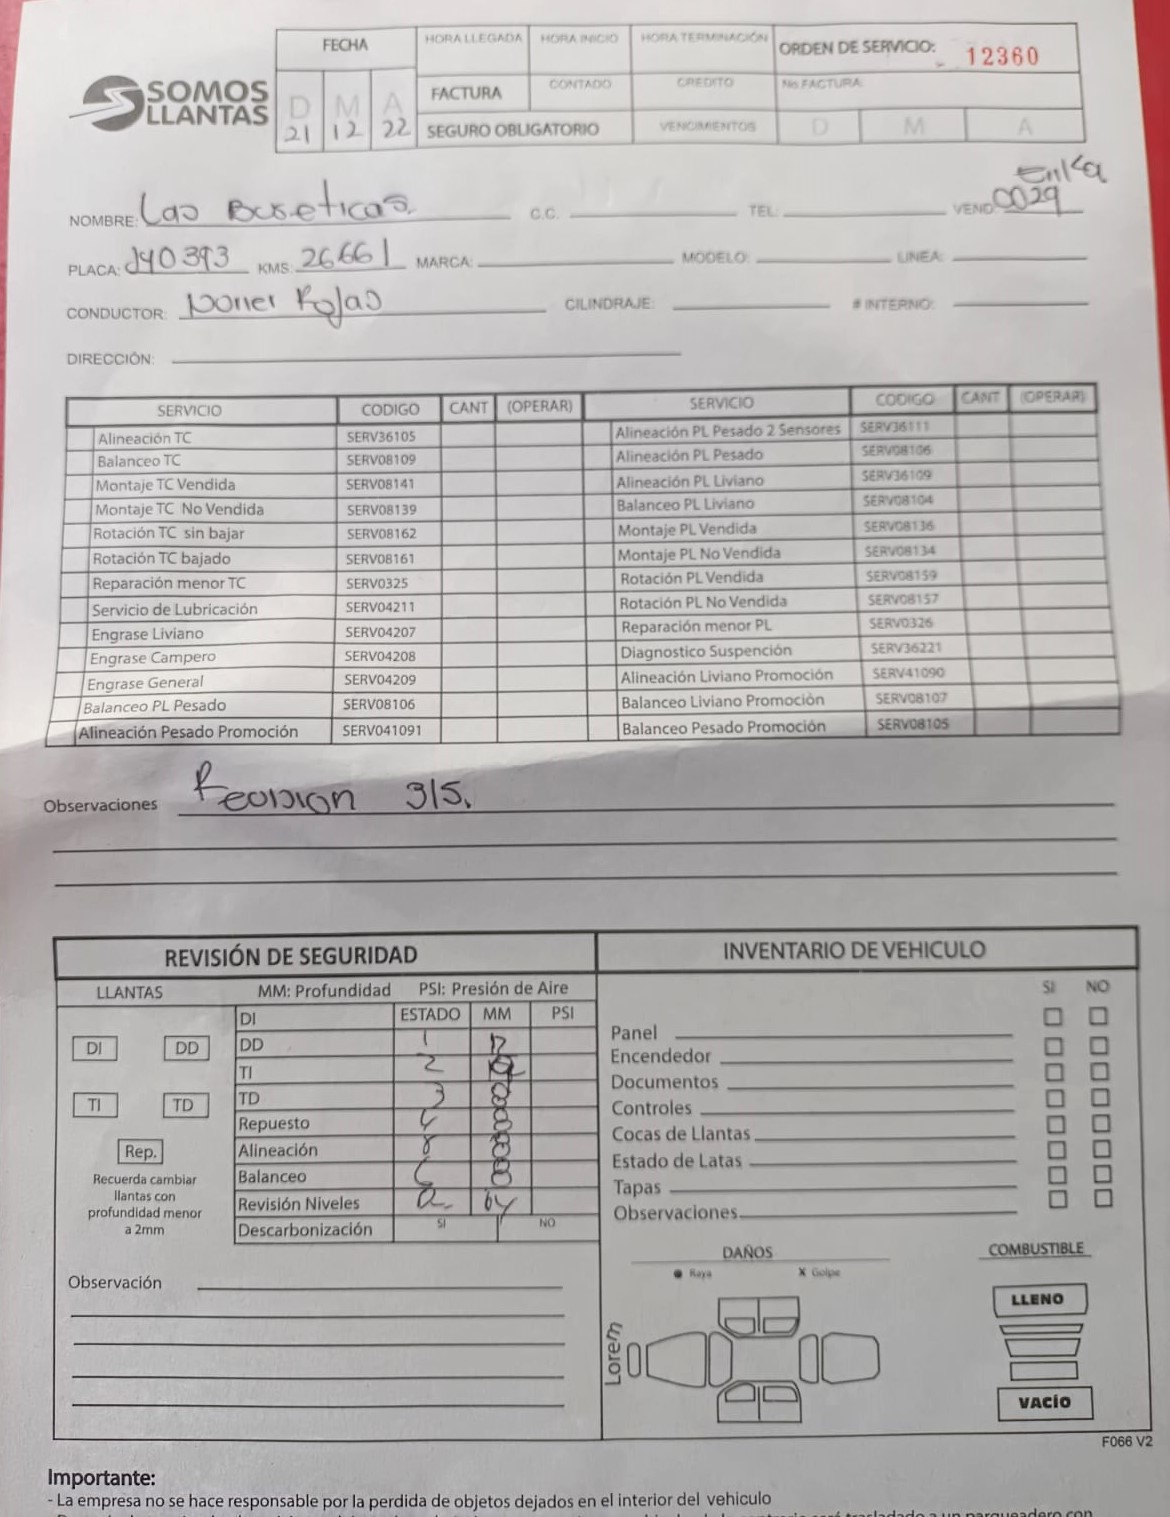 SOMOS LLANTAS
FECHA
D M A
21 12 22
HORA LLEGADA HORA INICIO HORA TERMINACIÓN ORDEN DE SERVICIO: 12360
FACTURA CONTADO CREDITO No. FACTURA
SEGURO OBLIGATORIO VENCIMIENTOS D M A
NOMBRE: Las Buseticas. C.C. TEL: VEND: 0029 Enka
PLACA: KMS 26661 MARCA: MODELO: LINEA:
CONDUCTOR: Rojas CILINDRAJE: # INTERNO:
DIRECCIÓN:
SERVICIO CODIGO CANT (OPERAR) SERVICIO CODIGO CANT (OPERAR)
Alineación TC SERV36105 Alineación PL Pesado 2 Sensores SERV36111
Balanceo TC SERV08109 Alineación PL Pesado SERV08106
Montaje TC Vendida SERV08141 Alineación PL Liviano SERV36109
Montaje TC No Vendida SERV08139 Balanceo PL Liviano SERV08104
Rotación TC sin bajar SERV08162 Montaje PL Vendida SERV08136
Rotación TC bajado SERV08161 Montaje PL No Vendida SERV08134
Reparación menor TC SERV0325 Rotación PL Vendida SERV08159
Servicio de Lubricación SERV04211 Rotación PL No Vendida SERV08157
Engrase Liviano SERV04207 Reparación menor PL SERV0326
Engrase Campero SERV04208 Diagnostico Suspención SERV36221
Engrase General SERV04209 Alineación Liviano Promoción SERV41090
Balanceo PL Pesado SERV08106 Balanceo Liviano Promoción SERV08107
Alineación Pesado Promoción SERV041091 Balanceo Pesado Promoción SERV08105
Observaciones Revision 315.
REVISIÓN DE SEGURIDAD
LLANTAS MM: Profundidad PSI: Presión de Aire
DI DD
TI TD
Rep.
Recuerda cambiar
llantas con
profundidad menor
a 2mm
DI ESTADO MM PSI
DD 1 12
TI 2
TD 3 8
Repuesto 4 8
Alineación 8
Balanceo 6 8
Revisión Niveles
Descarbonización SI NO
Observación
INVENTARIO DE VEHICULO
SI NO
Panel
Encendedor
Documentos
Controles
Cocas de Llantas
Estado de Latas
Tapas
Observaciones
DAÑOS
Raya X Golpe
Lorem
COMBUSTIBLE
LLENO
VACÍO
F066 V2
Importante:
- La empresa no se hace responsable por la perdida de objetos dejados en el interior del vehiculo